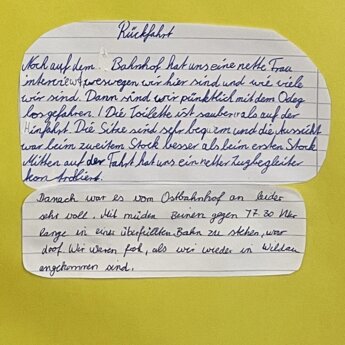 Rückfahrt
Noch auf dem Bahnhof hat uns eine nette Frau
interviewt weswegen wir hier sind und wie viele
wir sind. Dann sind wir pünktlich mit dem Odeg
losgefahren. Die Toilette ist sauberer als auf der
Hinfahrt. Die Sitze sind sehr bequem und die Aussicht
war beim zweitem Stock besser als beim ersten Stock.
Mitten auf der Fahrt hat uns ein netter Zugbegleiter
kontrolliert.
Danach war es vom Ostbahnhof an leider
sehr voll. Mit müden Beinen gegen 17.30 Uhr
lange in einer überfüllten Bahn zu stehen, war
doof. Wir waren froh, als wir wieder in Wildau
angekommen sind.